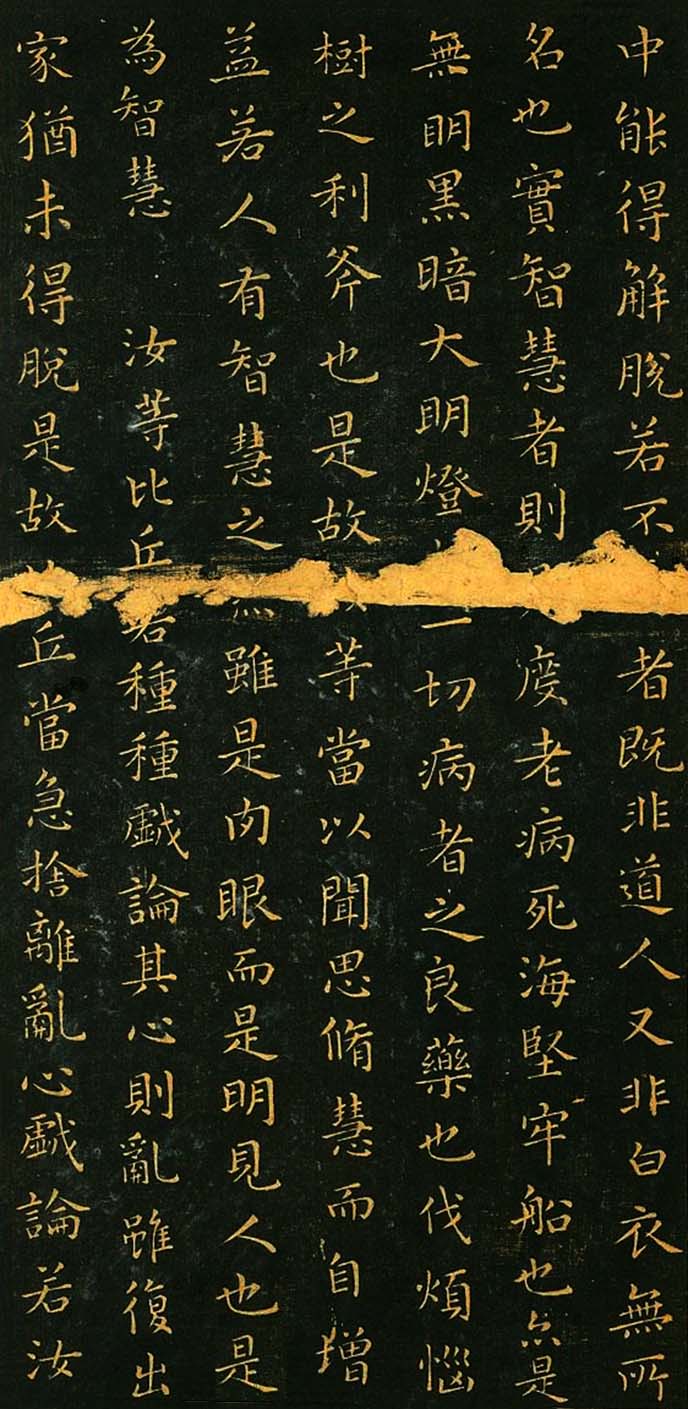 中能得解脫若不者既非道人又非白衣無所
名也實智慧者則度老病死海堅牢船也亦是
無明黑暗大明燈一切病者之良藥也伐煩惱
樹之利斧也是故等當以聞思脩慧而自增
益若人有智慧之雖是肉眼而是明見人也是
為智慧 汝等比丘若種種戲論其心則亂雖復出
家猶未得脫是故丘當急捨離亂心戲論若汝